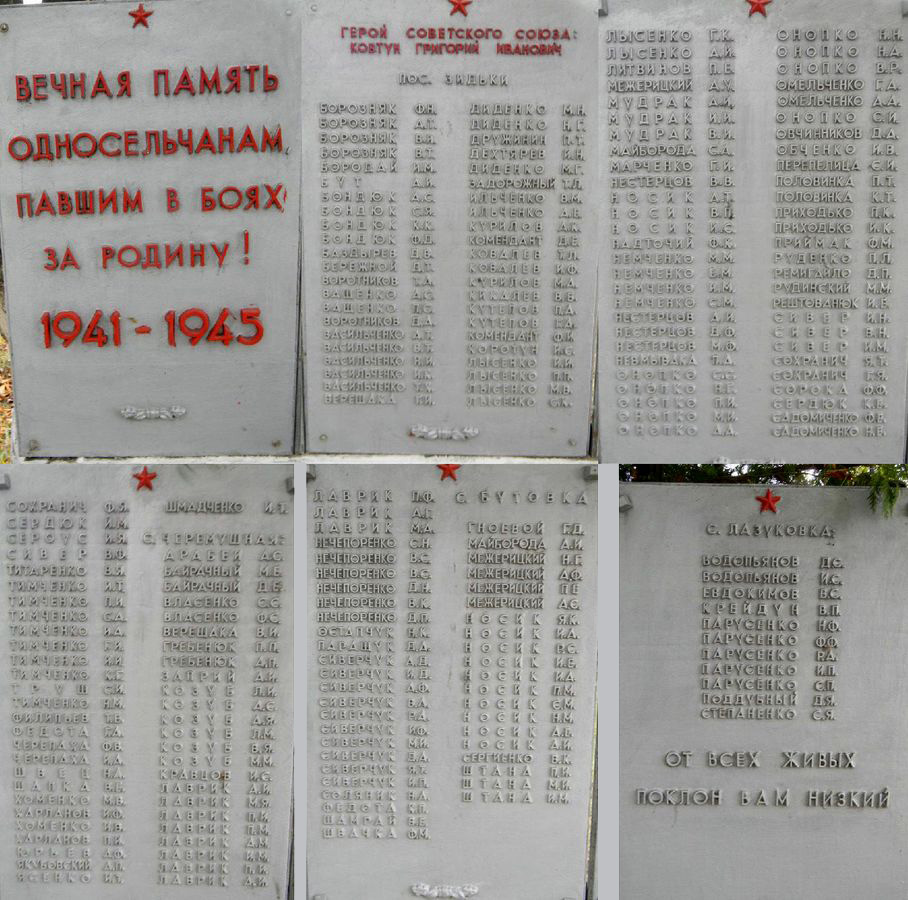 ВЕЧНАЯ ПАМЯТЬ
ОДНОСЕЛЬЧАНАМ,
ПАВШИМ В БОЯХ
ЗА РОДИНУ!
1941-1945
ГЕРОЙ СОВЕТСКОГО СОЮЗА:
КОВТУН ГРИГОРИЙ ИВАНОВИЧ
ПОС. ЗИДЬКИ
БОРОЗНЯК Ф.Н.
БОРОЗНЯК А.Т.
БОРОЗНЯК В.Н.
БОРОЗНЯК В.Т.
БОРОДАЙ И.М.
БУТ А.И.
БОНДЮК А.С.
БОНДЮК С.Я.
БОНДЮК К.К.
БОНДЮК Ф.Д.
БАЗДЫРЕВ Д.В.
БЕРЕЖНОЙ Д.Т.
ВОРОТНИКОВ Т.А.
ВАЩЕНКО А.С.
ВАЩЕНКО П.С.
ВОРОТНИКОВ Д.А.
ВАСИЛЬЧЕНКО А.Т.
ВАСИЛЬЧЕНКО В.Т.
ВАСИЛЬЧЕНКО И.И.
ВАСИЛЬЧЕНКО И.К.
ВАСИЛЬЧЕНКО Т.К.
ВЕРЕЩАКА Г.И.
ДИДЕНКО М.Н.
ДИДЕНКО Н.Г.
ДРУЖИНИН П.Т.
ДЕХТЯРЕВ И.Н.
ДИДЕНКО М.Г.
ЗАДОРОЖНЫЙ Т.Л.
ИЛЬЧЕНКО В.М.
ИЛЬЧЕНКО А.Е.
КУРИЛОВ А.К.
КОМЕНДАНТ Д.Е.
КОВАЛЕВ Т.Л.
КОВАЛЕВ И.Ф.
КУРИЛОВ М.А.
КИКАЛЕВ В.В.
КУТЕПОВ П.А.
КУТЕПОВ Г.А.
КОМЕНДАНТ Ф.И.
КОРОТУН И.С.
ЛЫСЕНКО И.И.
ЛЫСЕНКО П.П.
ЛЫСЕНКО М.В.
ЛЫСЕНКО С.К.
ЛЫСЕНКО Г.К.
ЛЫСЕНКО Д.И.
ЛИТВИНОВ П.Е.
МЕЖЕРИЦКИЙ А.У.
МУДРАК А.И.
МУДРАК И.И.
МУДРАК В.И.
МАЙБОРОДА С.А.
МАРЧЕНКО Г.И.
НЕСТЕРЦОВ В.В.
НОСИК А.Т.
НОСИК В.П.
НОСИК И.С.
НАДТОЧИЙ Ф.К.
НЕМЧЕНКО М.М.
НЕМЧЕНКО Е.М.
НЕМЧЕНКО И.М.
НЕМЧЕНКО С.М.
НЕСТЕРЦОВ А.И.
НЕСТЕРЦОВ Д.Ф.
НЕСТЕРЦОВ М.Ф.
НЕВМЫВАКА Т.А.
ОНОПКО С.С.
ОНОПКО Н.Е.
ОНОПКО П.И.
ОНОПКО М.И.
ОНОПКО А.А.
ОНОПКО Н.Н.
ОНОПКО Н.А.
ОНОПКО В.Р.
ОМЕЛЬЧЕНКО Г.А.
ОМЕЛЬЧЕНКО А.А.
ОНОПКО С.И.
ОВЧИННИКОВ Д.А.
ОБЧЕНКО И.В.
ПЕРЕПЕЛИЦА С.И.
ПОЛОВИНКА П.Т.
ПОЛОВИНКА К.Т.
ПРИХОДЬКО П.К.
ПРИХОДЬКО И.К.
ПРИЙМАК Ф.М.
РУДЕНКО П.П.
РЕМИГАЙЛО Д.П.
РУДИНСКИЙ М.М.
РЕШТОВАНЮК И.Е.
СИВЕР И.Н.
СИВЕР В.Н.
СИВЕР И.М.
СОХРАНИЧ Я.Т.
СОХРАНИЧ Г.Я.
СОРОКА Ф.Ф.
СЕРДЮК К.Е.
САДОМИЧЕНКО Ф.Е.
САДОМИЧЕНКО Н.Е.
СОХРАНИЧ Ф.Я.
СЕРДЮК И.М.
СЕРОУС И.Я.
СИВЕР В.Ф.
ТИТАРЕНКО В.Я.
ТИМЧЕНКО И.Т.
ТИМЧЕНКО П.И.
ТИМЧЕНКО С.А.
ТИМЧЕНКО И.А.
ТИМЧЕНКО Г.И.
ТИМЧЕНКО И.И.
ТИМЧЕНКО К.Е.
ТРУШ С.И.
ТИМЧЕНКО Н.М.
ФИЛИПЬЕВ Т.Е.
ФЕДОТА Г.А.
ЧЕРЕПАХА Ф.В.
ЧЕРЕПАХА И.А.
ШВЕЦ Н.А.
ШАПКА В.Е.
ХОМЕНКО М.В.
ХАРЛАНОВ И.Ф.
ХОМЕНКО И.В.
ХАРЛАНОВ П.И.
ЮРЬЕВ Д.Ф.
ЯКУБОВСКИЙ А.П.
ЯСЕНКО И.Т.
ШМАДЧЕНКО И.Т.
С. ЧЕРЕМУШНАЯ:
АРАБЕЙ А.С.
БАЙРАЧНЫЙ М.Е.
БАЙРАЧНЫЙ Д.Е.
ВЛАСЕНКО С.С.
ВЛАСЕНКО Ф.С.
ВЕРЕЩАКА В.И.
ГРЕБЕНЮК П.П.
ГРЕБЕНЮК Д.П.
ЗАПРИЙ А.И.
КОЗУБ Л.И.
КОЗУБ А.С.
КОЗУБ А.Я.
КОЗУБ Л.М.
КОЗУБ В.Я.
КОЗУБ М.М.
КРАВЦОВ И.С.
ЛАВРИК А.И.
ЛАВРИК М.Я.
ЛАВРИК П.И.
ЛАВРИК П.М.
ЛАВРИК Д.М.
ЛАВРИК И.М.
ЛАВРИК Г.И.
ЛАВРИК А.И.
ЛАВРИК П.Ф.
ЛАВРИК А.Г.
ЛАВРИК М.А.
НЕЧЕПОРЕНКО С.Н.
НЕЧЕПОРЕНКО В.С.
НЕЧЕПОРЕНКО В.С.
НЕЧЕПОРЕНКО Д.Н.
НЕЧЕПОРЕНКО В.К.
НЕЧЕПОРЕНКО Д.П.
ОСТАПЧУК Н.К.
ПАРАЩУК Д.А.
СИВЕРЧУК А.Д.
СИВЕРЧУК И.Д.
СИВЕРЧУК А.Ф.
СИВЕРЧУК В.А.
СИВЕРЧУК Р.Д.
СИВЕРЧУК И.Ф.
СИВЕРЧУК М.И.
СИВЕРЧУК Д.А.
СИВЕРЧУК Я.Т.
СИВЕРЧУК И.П.
СОЛЯНИК Н.А.
ФЕДОТА К.П.
ШАМРАЙ В.Е.
ШВАЧКА Ф.М.
С. БУТОВКА
ГНОЕВОЙ Г.Д.
МАЙБОРОДА А.И.
МЕЖЕРИЦКИЙ Н.Г.
МЕЖЕРИЦКИЙ А.Ф.
МЕЖЕРИЦКИЙ П.Е.
МЕЖЕРИЦКИЙ А.С.
НОСИК Я.К.
НОСИК И.А.
НОСИК Р.С.
НОСИК И.Е.
НОСИК И.Д.
НОСИК П.М.
НОСИК С.М.
НОСИК Н.М.
НОСИК А.Е.
НОСИК А.И.
СЕРГИЕНКО В.К.
ШТАНА П.И.
ШТАНА М.И.
ШТАНА И.М.
С. ЛАЗУКОВКА:
ВОДОПЬЯНОВ Д.С.
ВОДОПЬЯНОВ И.С.
ЕВДОКИМОВ В.С.
КРЕЙДУН В.П.
ПАРУСЕНКО Н.Ф.
ПАРУСЕНКО Ф.Ф.
ПАРУСЕНКО Г.А.
ПАРУСЕНКО И.П.
ПАРУСЕНКО С.П.
ПОДДУБНЫЙ Д.Я.
СТЕПАНЕНКО С.Я.
ОТ ВСЕХ ЖИВЫХ
ПОКЛОН ВАМ НИЗКИЙ